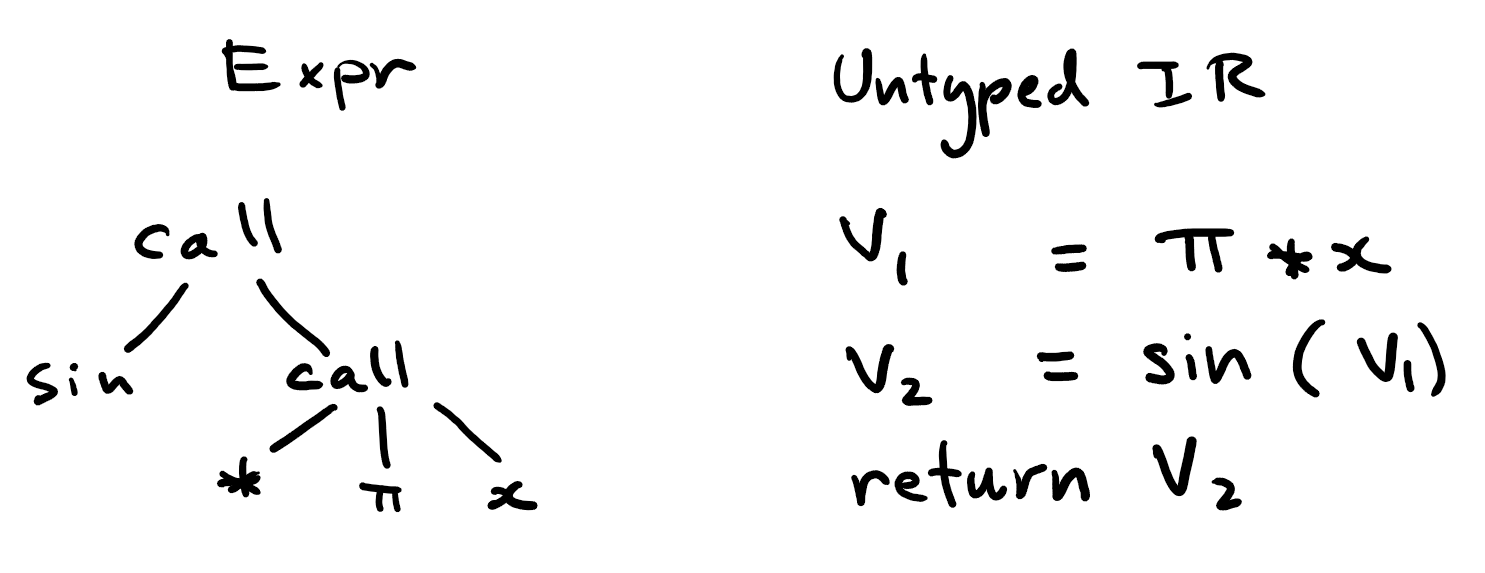 Expr
call
sin call
* π x
Untyped IR
V₁ = π * x
V₂ = sin ( V₁)
return V₂